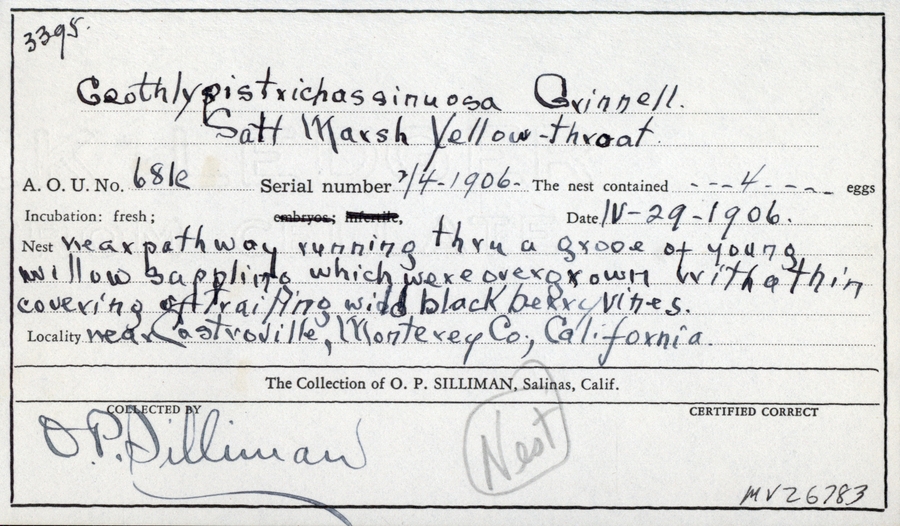 3395.
Geothlypistrichassinuosa Grinnell.
Salt Marsh Yellow-throat
A. O. U. No. 681e Serial number 2/4-1906- The nest contained ---4---- eggs
Incubation: fresh; embryos; infertile, Date IV-29-1906.
Nest near pathway running thru a grove of young
willow sappling which were overgrown with a thin
covering of trailing wild black berry vines.
Locality near Castroville, Monterey Co., California.
The Collection of O. P. SILLIMAN, Salinas, Calif.
COLLECTED BY CERTIFIED CORRECT
O.P. Silliman
Nest
MVZ6783